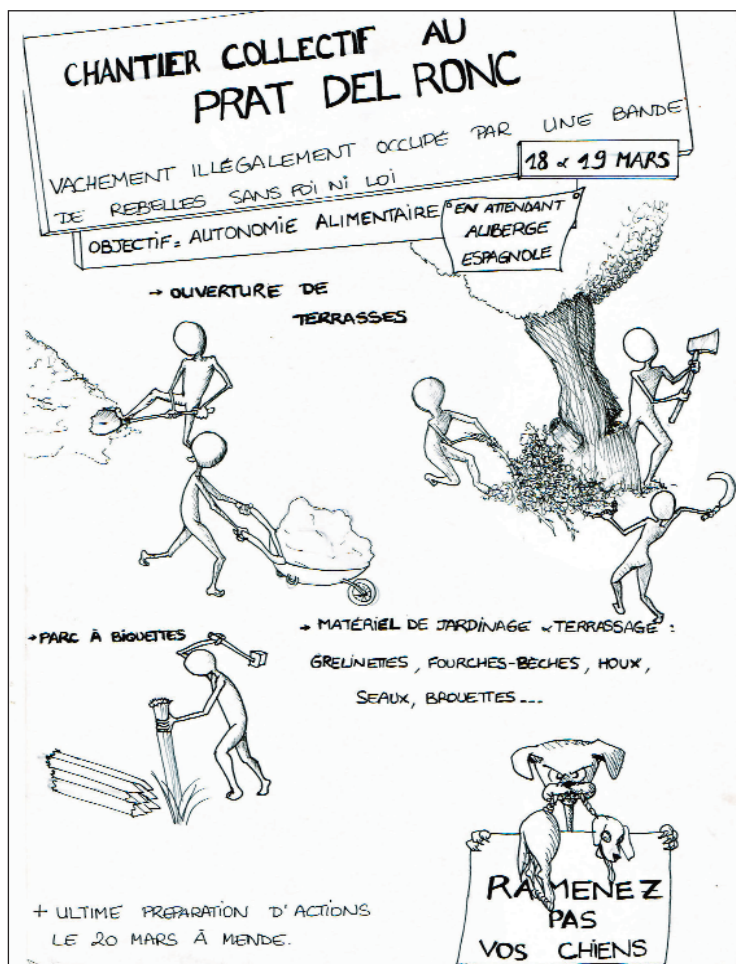 CHANTIER COLLECTIF AU
PRAT DEL RONC
VACHEMENT ILLÉGALEMENT OCCUPÉ PAR UNE BANDE
DE REBELLES SANS FOI NI LOI
18 & 19 MARS
OBJECTIF = AUTONOMIE ALIMENTAIRE
EN ATTENDANT
AUBERGE
ESPAGNOLE
→ OUVERTURE DE
TERRASSES
→ PARC À BIQUETTES
→ MATÉRIEL DE JARDINAGE & TERRASSAGE :
GRELINETTES, FOURCHES-BÊCHES, HOUX,
SEAUX, BROUETTES...
RAMENEZ
PAS
VOS CHIENS
+ ULTIME PREPARATION D'ACTIONS
LE 20 MARS À MENDE.